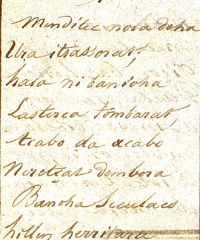 Menditic nora doha
Ura itsassorat,
hala ni banioha
Lasterca tombarat,
Acabo da acabo
Neretçat dembora
Banoha Seculaco
hillen herritara